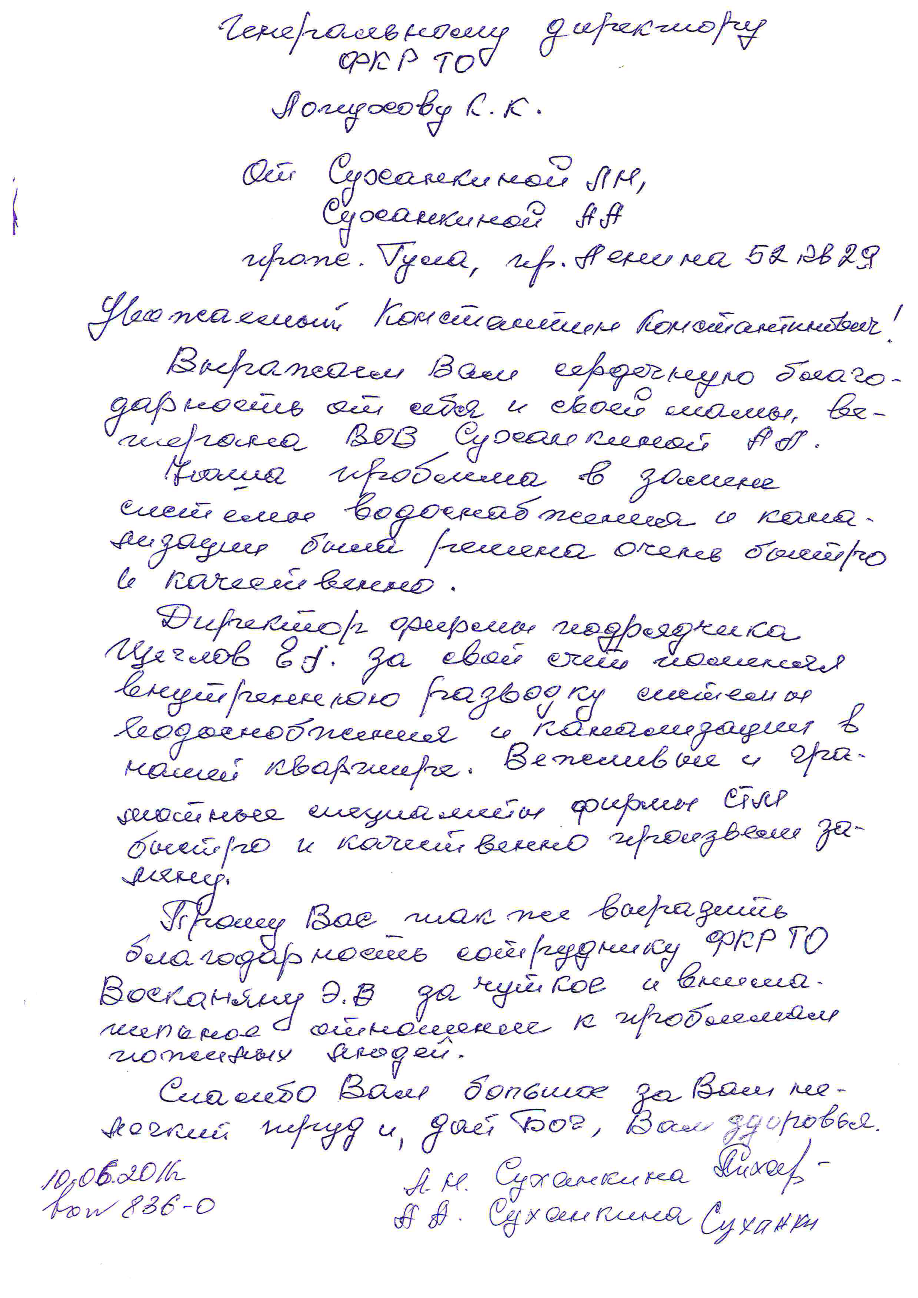 Генеральному директору
ФКР ТО
Лопухову К. К.
От Суханкиной Л Н,
Суханкиной А А
прож. Тула, пр. Ленина 52 кв 29
Уважаемый Константин Константинович!
Выражаем Вам сердечную благо-
дарность от себя и своей мамы, ве-
терана ВОВ Суханкиной А А.
Наша проблема в замене
системы водоснабжения и кана-
лизации была решена очень быстро
и качественно.
Директор фирмы подрядчика
Щеглов Е за свой счет поменял
внутреннюю разводку системы
водоснобжения и канализации в
нашей квартире. Вежливые и гра-
мотные специалисты фирмы
быстро и качественно произвели за-
мену.
Прошу Вас так же выразить
благодарность сотруднику ФКР ТО
Восканяну Э.В за чуткое и внима-
тельное отношение к проблемам
пожилых людей.
Спасибо Вам большое за Ваш не-
легкий труд и, дай Бог, Вам здоровья.
10.06.2016
836-О
Л.Н. Суханкина
А А. Суханкина Сухан